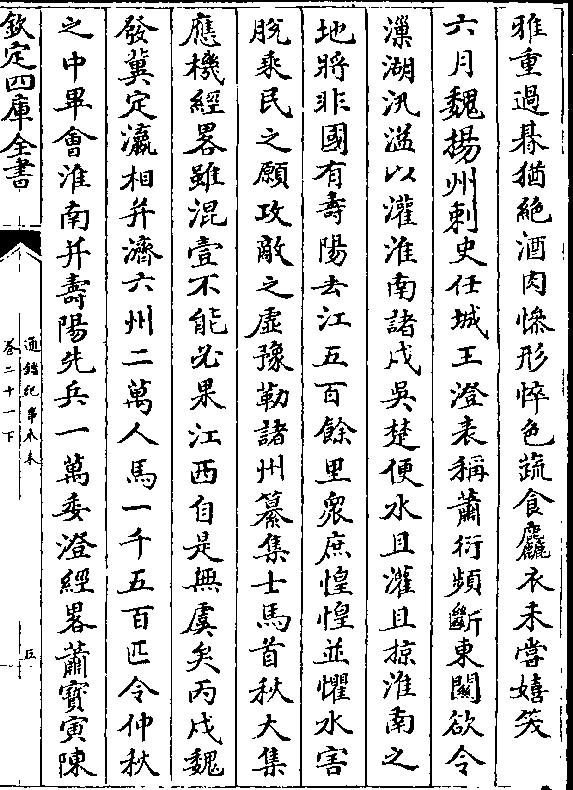 雅重過朞猶絶酒肉慘形悴色蔬食麤衣未嘗嬉笑
六月魏揚州刺史任城王澄表稱蕭衍頻斷東關欲令
漅湖汎溢以灌淮南諸戍吳楚便水且灌且掠淮南之
地將非國有壽陽去江五百餘里衆庶惶惶並懼水害
脫乘民之願攻敵之虛豫勒諸州纂集士馬首秋大集
應機經畧雖混壹不能必果江西自是無虞矣丙戌魏
發冀定瀛相并濟六州二萬人馬一千五百匹令仲秋
之中畢會淮南并壽陽先兵一萬委澄經畧蕭寶寅陳
欽定四庫全書
通鑑紀事本末
卷二十一下